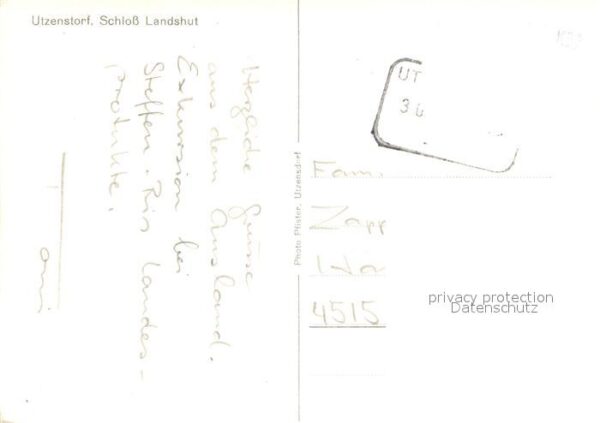 Utzenstorf. Schloß Landshut
Herzliche Grüsse
aus dem Ausland.
Exkursion bei
Steffen-Ris Landes-
produkte.
Photo Pfister, Utzensdorf
UT
3
Fam.
Zapp
4515
privacy protection
Datenschutz